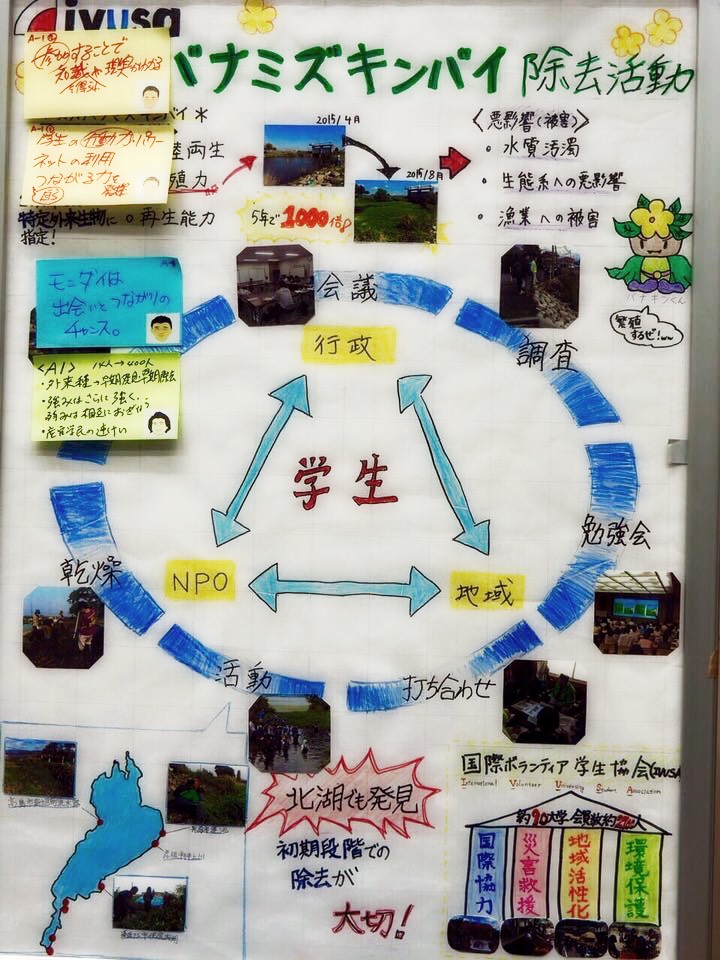 ivusa
バナミズキンバイ 除去活動
A-1
参加することで
A-1
学生の行動力・パワー
ネットの利用
つながる力を
発揮
陸両生
殖力
特定外来生物に
指定!
○再生能力
2015/4月
2015/8月
5年で1000倍
〈悪影響(被害)〉
・水質汚濁
・生態系への悪影響
・漁業への被害
バナキンくん
繁殖
するぜ!ww
モンダイは
出会いとつながりの
チャンス。
〈A1〉 14人→400人
・強みはさらに強く、
・産官学民の連けい
会議
行政
調査
学生
勉強会
乾燥
NPO
地域
活動
打ち合わせ
北湖でも発見
初期段階での
除去が
大切!
国際ボランティア学生協会(IVUSA
International Volunteer University Student Association
約90大学
国際協力
災害救援
地域活性化
環境保護